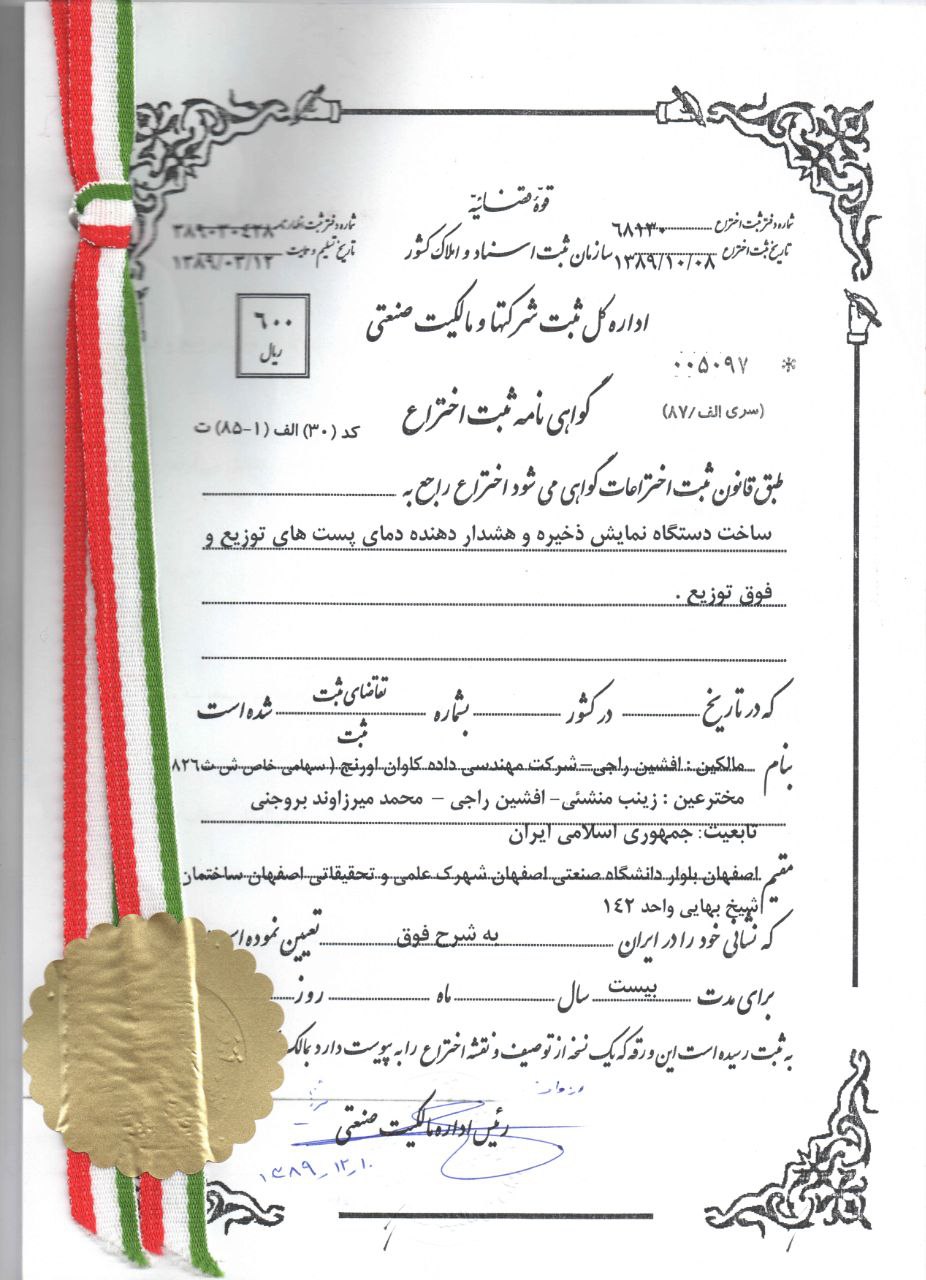 قوّهٔ قضائیّه
شماره دفتر ثبت اختراع ۶۸۹۳۰
شماره دفتر ثبت اظهارنامه ۳۸۹۰۳۰۴۳۸
تاریخ ثبت اختراع ۱۳۸۹/۱۰/۰۸
سازمان ثبت اسناد و املاک کشور
تاریخ تسلیم و حمایت ۱۳۸۹/۰۳/۱۲
اداره کل ثبت شرکتها و مالکیت صنعتی
۶۰۰
ریال
۰۰۵۰۹۷ *
(سری الف/۸۷)
گواهی نامه ثبت اختراع
کد (۳۰) الف (۱-۸۵) ت
طبق قانون ثبت اختراعات گواهی می شود اختراع راجع به
ساخت دستگاه نمایش ذخیره و هشدار دهنده دمای پست های توزیع و
فوق توزیع .
که در تاریخ در کشور بشماره تقاضای ثبت شده است
ثبت
بنام مالکین : افشین راجی– شرکت مهندسی داده کاوان اورنج ( سهامی خاص ش ث۸۲۶
مخترعین : زینب منشئی– افشین راجی – محمد میرزاوند بروجنی
تابعیت: جمهوری اسلامی ایران
مقیم اصفهان بلوار دانشگاه صنعتی اصفهان شهرک علمی و تحقیقاتی اصفهان ساختمان
شیخ بهایی واحد ۱۴۲
که نشانی خود را در ایران به شرح فوق تعیین نموده
برای مدت بیست سال ماه روز
به ثبت رسیده است این ورقه که یک نسخه از توصیف و نقشه اختراع را به پیوست دارد بمالک
رئیس اداره مالکیت صنعتی
۱۳۸۹_۱۲_۱۰